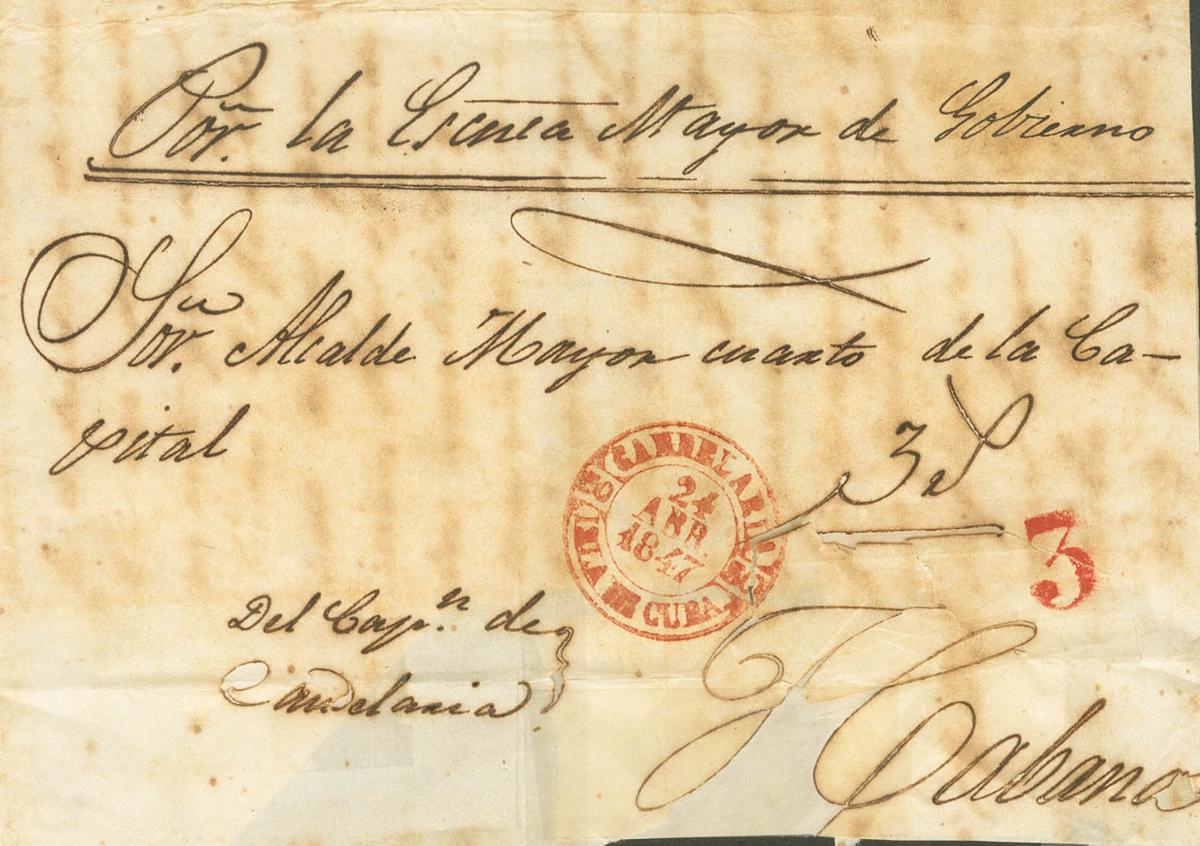 Por. la Escnea Mayor de Gobierno
Sor. Alcalde Mayor cuarto de la Ca-
pital
3 
CANDELARIA
24
ABR
1847
DE CUBA
3
Del Capn. de
Candelaria
Habana